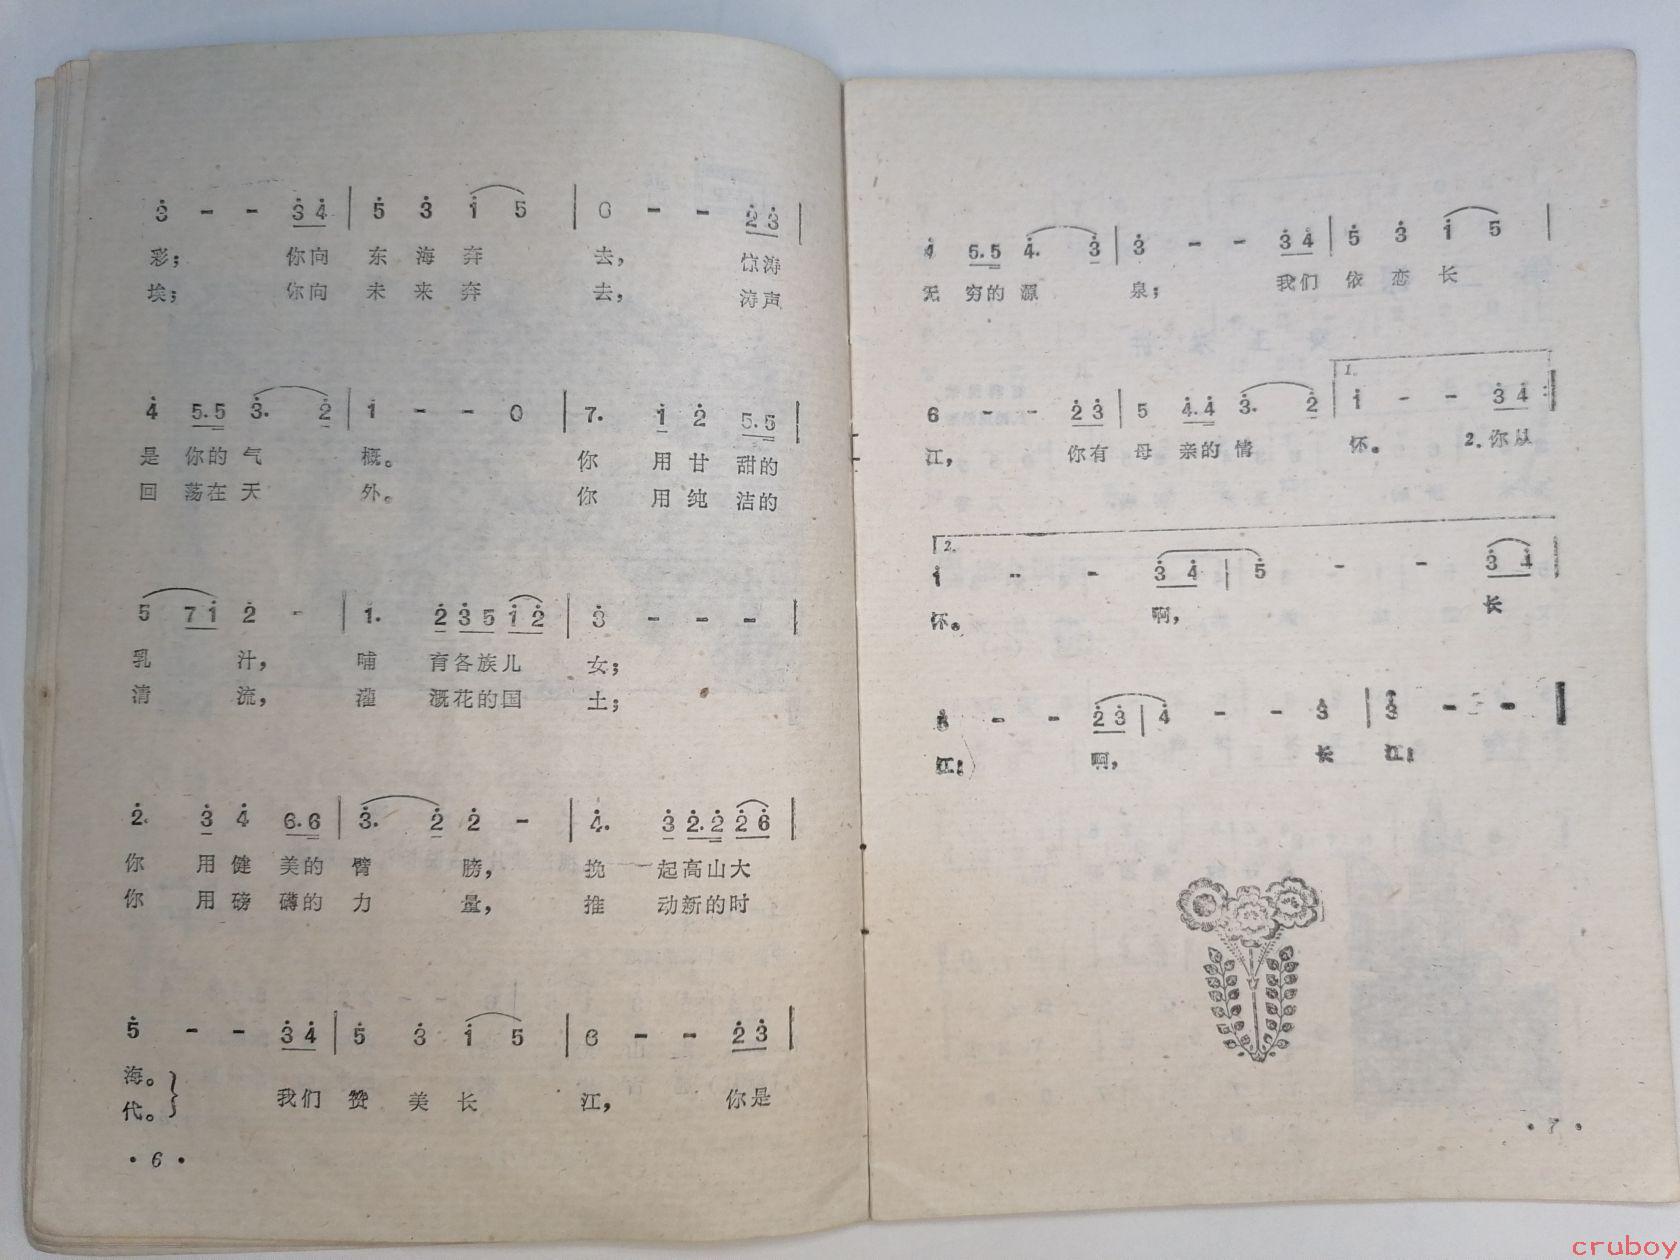 3 - - 3 4 | 5 3 1 5 | 6 - - 2 3 |
彩； 你向 东 海 奔 去， 惊涛
埃； 你向 未 来 奔 去， 涛声
4 5.5 3. 2 | 1 - - 0 | 7. 1 2 5.5 |
是 你的 气 概。 你 用 甘 甜的
回 荡在 天 外。 你 用 纯 洁的
5 7 1 2 - | 1. 2 3 5 1 2 | 3 - - - |
乳 汁， 哺 育各族儿 女；
清 流， 灌 溉花的国 土；
2. 3 4 6.6 | 3. 2 2 - | 4. 3 2.2 2 6 |
你 用 健 美的 臂 膀， 挽 起高山大
你 用 磅 礴的 力 量， 推 动新的时
5 - - 3 4 | 5 3 1 5 | 6 - - 2 3 |
海。
代。
我们 赞 美 长 江， 你是
• 6 •
4 5.5 4. 3 | 3 - - 3 4 | 5 3 1 5 |
无 穷的 源 泉； 我们 依 恋 长
1.
6 - - 2 3 | 5 4.4 3. 2 | 1 - - 3 4 :|
江， 你有 母 亲的 情 怀。 2.你从
2.
1 - - 3 4 | 5 - - 3 4 |
怀。 啊， 长
- - 2 3 | 4 - - 3 | 3 - - |
江！ 啊， 长 江！
• 7 •
cruboy